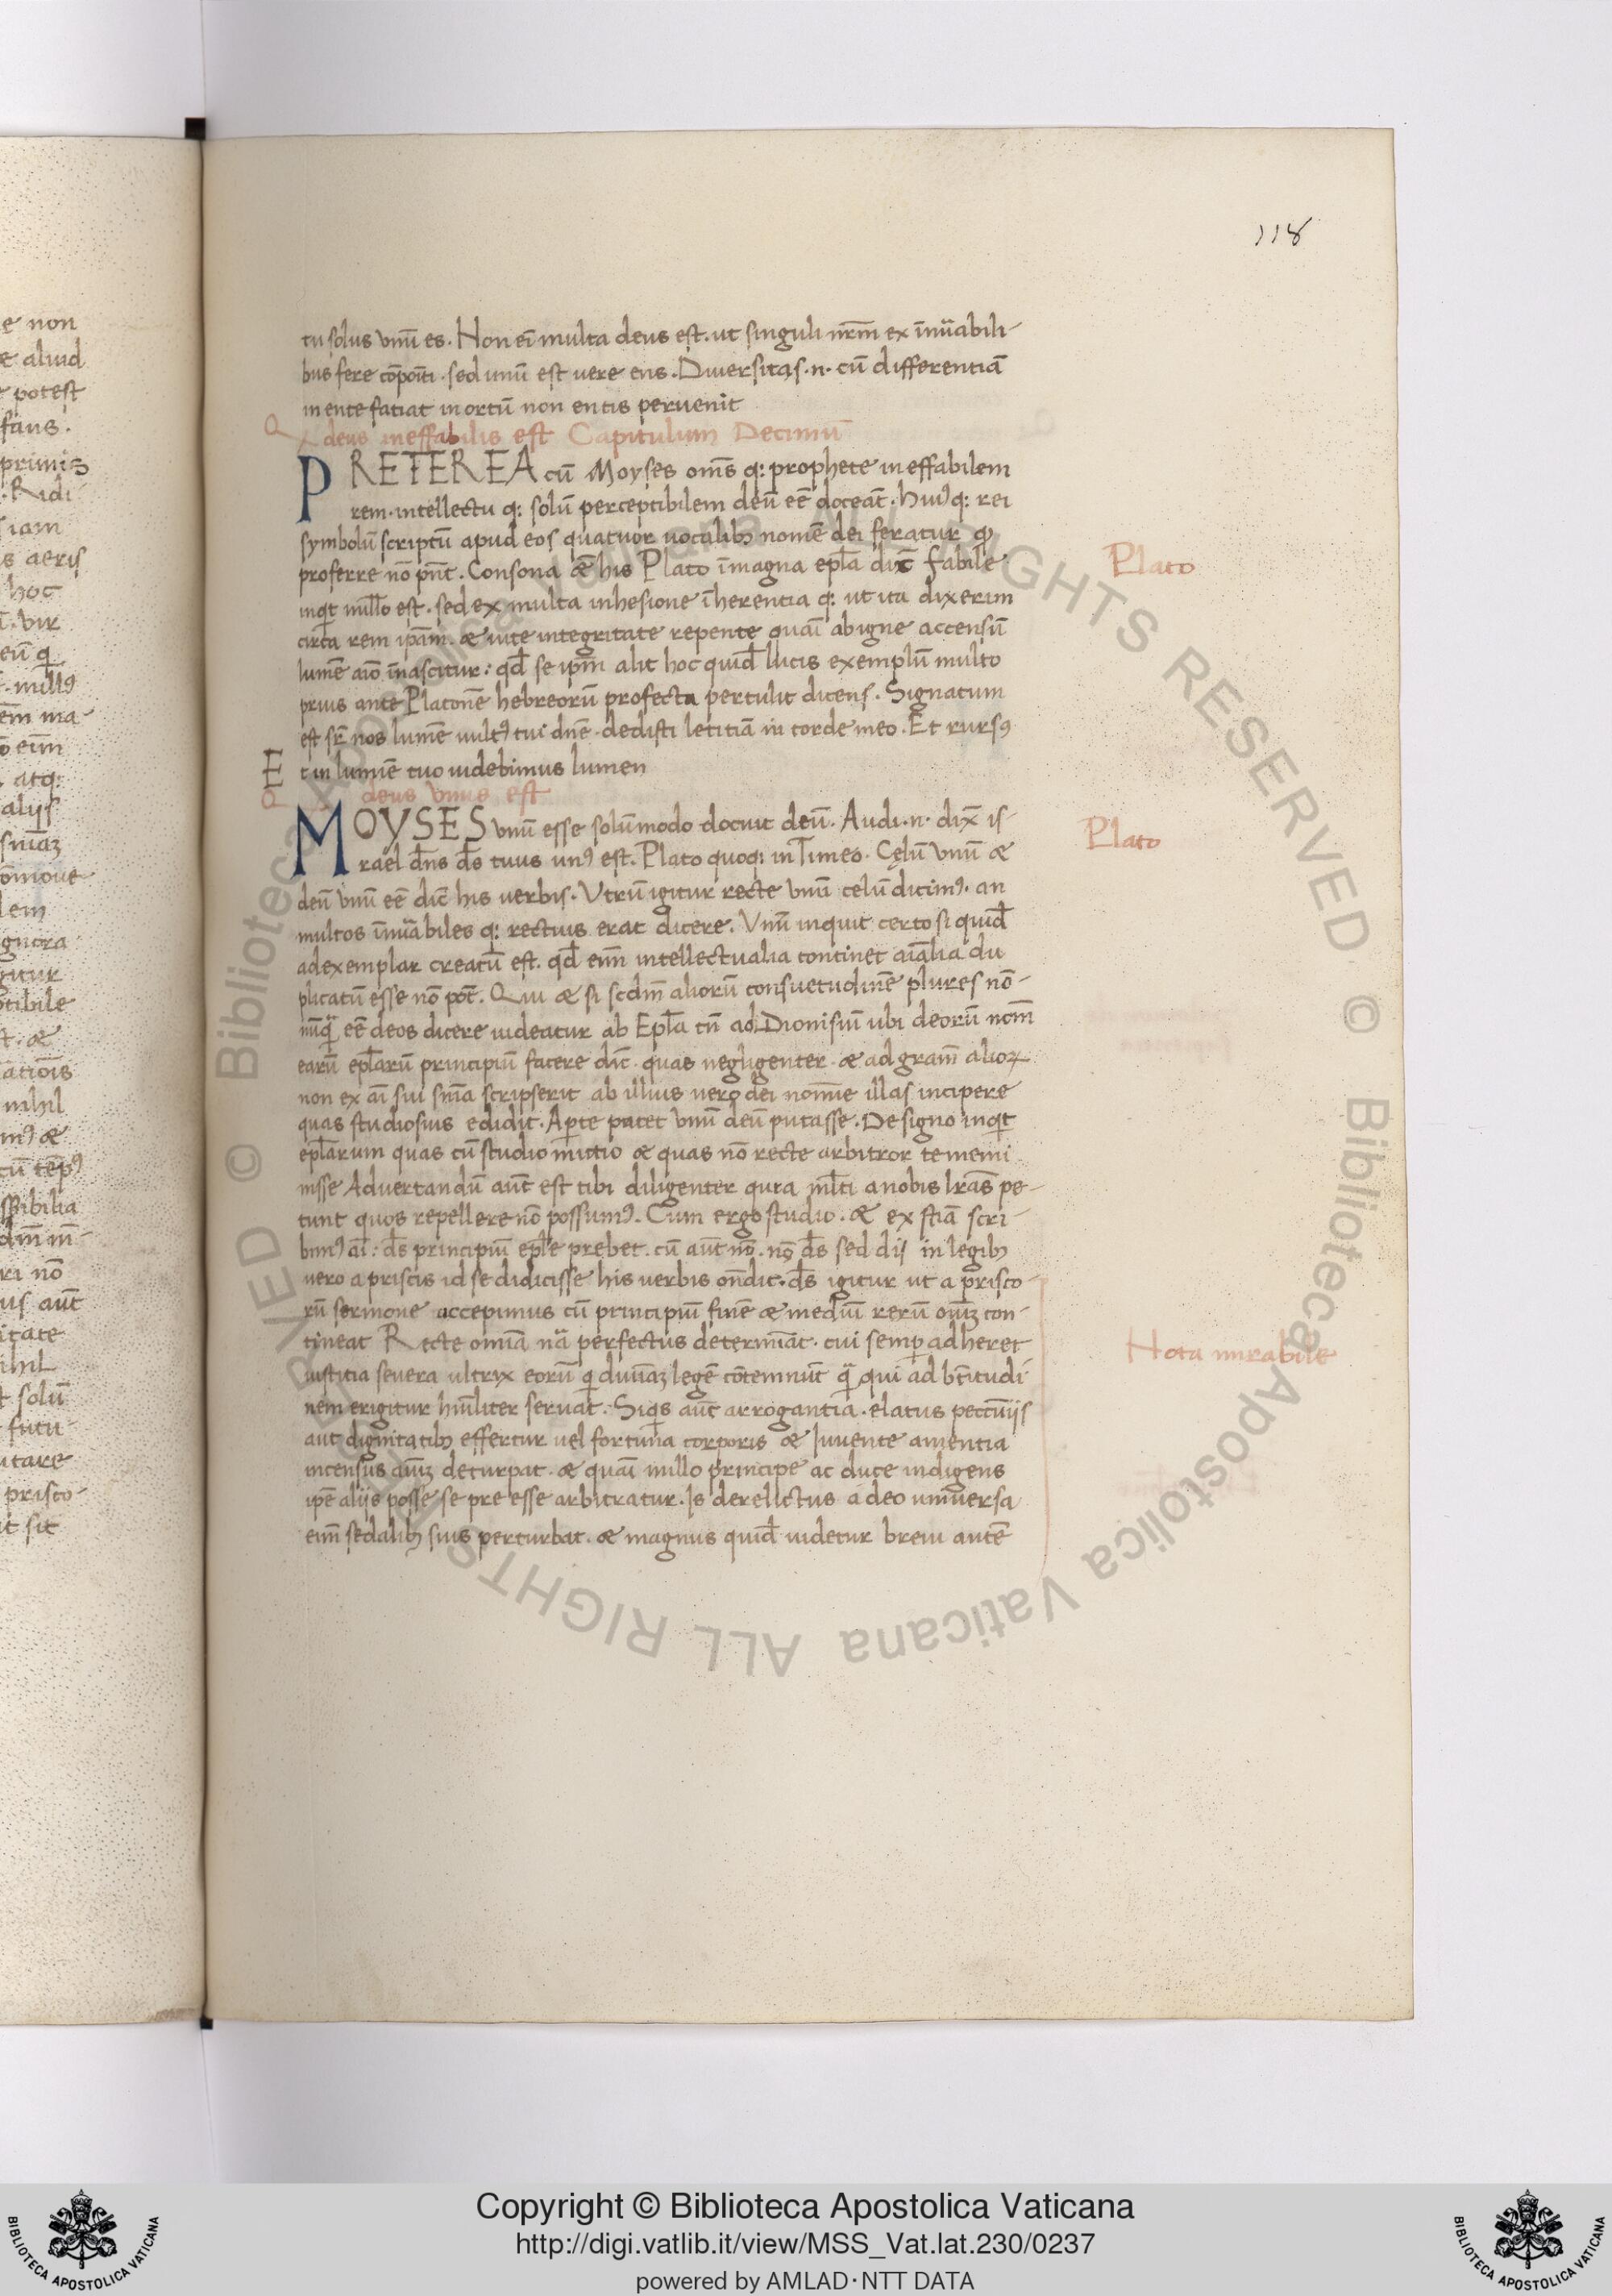 118
tu solus vnū es. Non eī multa deus est. ut singuli nrm̄ ex īnūabili-
bus fere cōpoīti. sed unū est uere ens. Diuersitas .n. cū differentiā
in ente faciat in ortū non entis peruenit
Q deus ineffabilis est Capitulum Decimū
PRETEREA cū Moyses oms̄ q: prophete ineffabilem
rem. intellectu q: solū perceptibilem deū eē doceāt. huiꝰ q: rei
symbolū scriptū apud eos quatuor uocalibꝫ nomē dei feratur qđ
proferre nō pn̄t. Consona æ his Plato ī magna epl̄a dic̄ fabile
inqt nullo est. sed ex multa inhesione īherentia q: ut ita dixerim
circa rem ip̄am. æ uite integritate repente quāi ab igne accensū
lumē aīo īnascitur: qd̄ se ip̄m alit hoc quid̄ lucis exemplū multo
prius ante Platonē hebreorū profecta pertulit dicens. Signatum
est sr̄ nos lumē uultꝰ tui dnē. dedisti letitiā in corde meo. Et rursꝰ
Et in lumīe tuo uidebimus lumen
deus vnus est
MOYSES vnū esse solūmodo docuit deū. Audi .n. dix̄ is-
rael dn̄s ds̄ tuus unꝰ est. Plato quoq: in Timeo. Cęlū vnū æ
deū vnū eē dic̄ his uerbis. Vtrū igitur recte vnū celū dicimꝰ. an
multos īnūabiles q: rectius erat dicere. Vnū inquit certo si quid̄
ad exemplar creatū est. qd̄ eīm intellectualia continet aīalia du
plicatū esse nō pōt. Qui æ si scdm̄ aliorū consuetudinē plures nō-
nūq̄ eē deos dicere uideatur ab Epl̄a tn̄ ad Dionisiū ubi deorū nom̄
earū epl̄arū principiū facere dic̄. quas negligenter. æ ad gram̄ alioꝝ
non ex aī sui snīa scripserit ab illius uero dei nomīe illas incipere
quas studiosius edidit. Aperte patet vnū deū putasse. De signo inqt
epl̄arum quas cū studio mitto æ quas nō recte arbitror te memi
nisse Aduertandū aūt est tibi diligenter qura ml̄ti a nobis lr̄as pe-
tunt quos repellere nō possumꝰ. Cum ergo studio. æ ex stiā scri-
bimꝰ aī: ds̄ principiū epl̄e prebet. cū aūt nō. nō ds̄ sed dij in legibꝫ
uero a priscis id se didicisse his uerbis on̄dit. ds̄ igitur ut a prisco-
rū sermone accepimus cū principiū finē æ mediū rerū oīuꝫ con-
tineat Recte omīa nā perfectus determīat. cui semp adheret
iustitia seuera ultrix eorū q diuīaꝫ legē cōtemnūt q̄ qui ad btītudi
nem erigitur hūliter seruat. Siqs aūt arrogantia. elatus peccūijs
aut dignitatibꝫ effertur uel fortuna corporis æ Iuuente amentia
incensus aīuꝫ deturpat. æ quāi nullo principe ac duce indigens
ipē alijs posse se pre esse arbitratur. Is derelictus a deo uniuersa
eīm sedalibꝫ suis perturbat. æ magnus quid̄ uidetur breui autē
Plato
Plato
Nota mirabile
© Biblioteca Apostolica Vaticana ALL RIGHTS RESERVED © Biblioteca Apostolica Vaticana ALL RIGHTS RESERVED
Copyright © Biblioteca Apostolica Vaticana
http://digi.vatlib.it/view/MSS_Vat.lat.230/0237
powered by AMLAD·NTT DATA
BIBLIOTECA APOSTOLICA VATICANA
BIBLIOTECA APOSTOLICA VATICANA